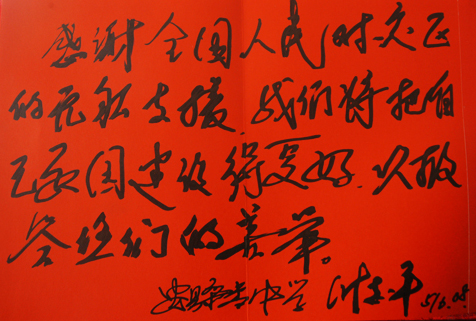 感谢全国人民对灾区
的无私支援,我们将把自
己家园建设得更好,以报
答他们的善举。
安县桑枣中学 叶志平